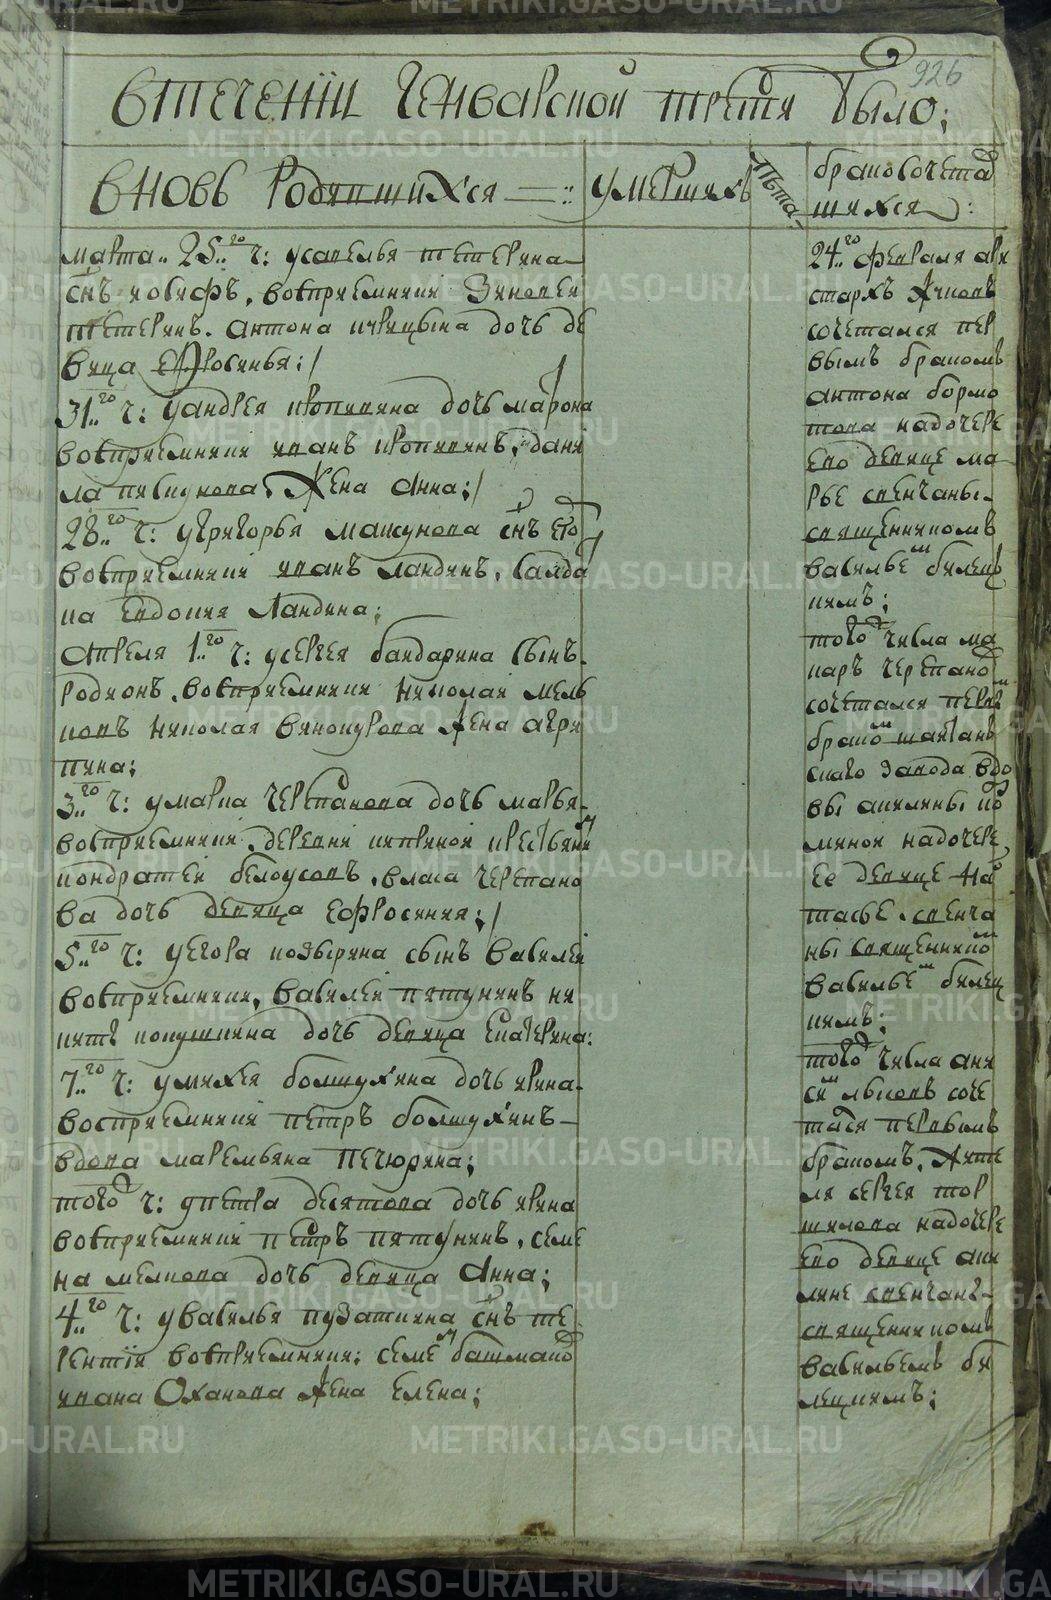 926
втечениi генварской трети было;
вновь родившихся
умершихъ
лѣта
бракосочета
шихся:
марта 25го ч: усавелья тетерина
снъ иосифъ, восприемники Зиновей
тетеринъ. антона
дочь де
вица Ефросинья;
31го ч: уандрея кропивина дочь марѳна
восприемники иванъ кропивинъ, дани
ла пискунова, жена анна;
28го ч: угригорья максунова снъ
восприемники иванъ ландинъ, салда
ка Евдокия Ландина;
апреля 1го ч: усергея бандарина сынъ
родионъ, восприемники николай мель
ковъ николая винокурова жена агри
пина;
3го ч: умарка черепанова дочь марья
восприемники, деревни крестьянинъ
кондратей белоусовъ, власа черепано
ва дочь девица ефросиния;
5го ч: уегора козырина сынъ василей
восприемники, василей пятунинъ ни
киты кокушкина дочь девица Екатерина:
7го ч: умихея болшухина дочь ирина
восприемники петръ болшухинъ
вдова маремьяна печюрина;
того ч: упетра десятова дочь ирина
восприемники петръ пятунинъ, семе
на мелкова дочь девица анна;
4го ч: увасилья пузаткина снъ те
рентiя восприемники: семенъ башмаков
ивана Оханова жена елена;
24го февраля ари
стархъ
сочетался пер
вымъ бракомъ
антона бормо
това надочере
ево девице ма
рье свенчаны
священникомъ
васильемъ билец
кимъ;
того числа ма
каръ черепанов
сочетался первым
браком шайтанъ
скаго завода вдо
вы акилины по
мянои надочере
ее девице на
тасье, свенча
ны священником
васильем билец
кимъ;
того числа ани
сим лысовъ соче
тася первымъ
бракомъ, жите
ля сергея тор
шилова надочере
ево девице аки
лине свенчан
священникомъ
васильемъ би
лецкимъ;
METRIKI.GASO-URAL.RU